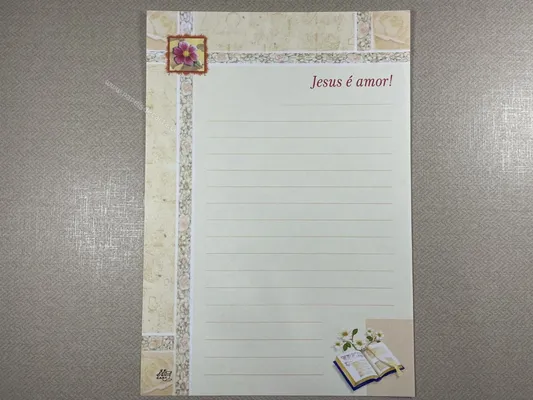 Jesus é amor!